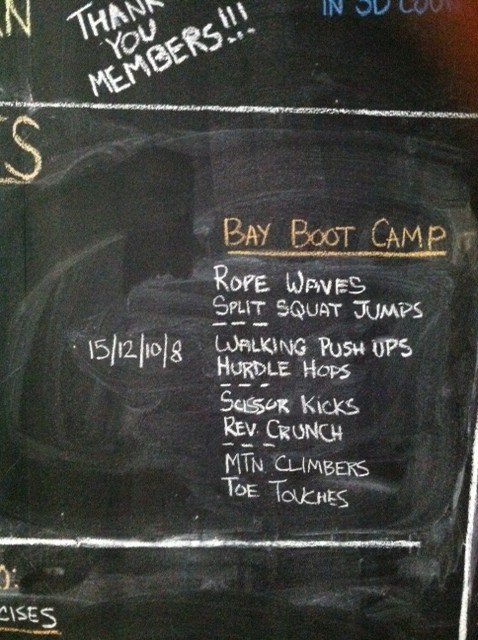 THANK
YOU
MEMBERS!!!
IN 3D
BAY BOOT CAMP
ROPE WAVES
SPLIT SQUAT JUMPS
15/12/10/8
WALKING PUSH UPS
HURDLE HOPS
SCISSOR KICKS
REV. CRUNCH
MTN CLIMBERS
TOE TOUCHES